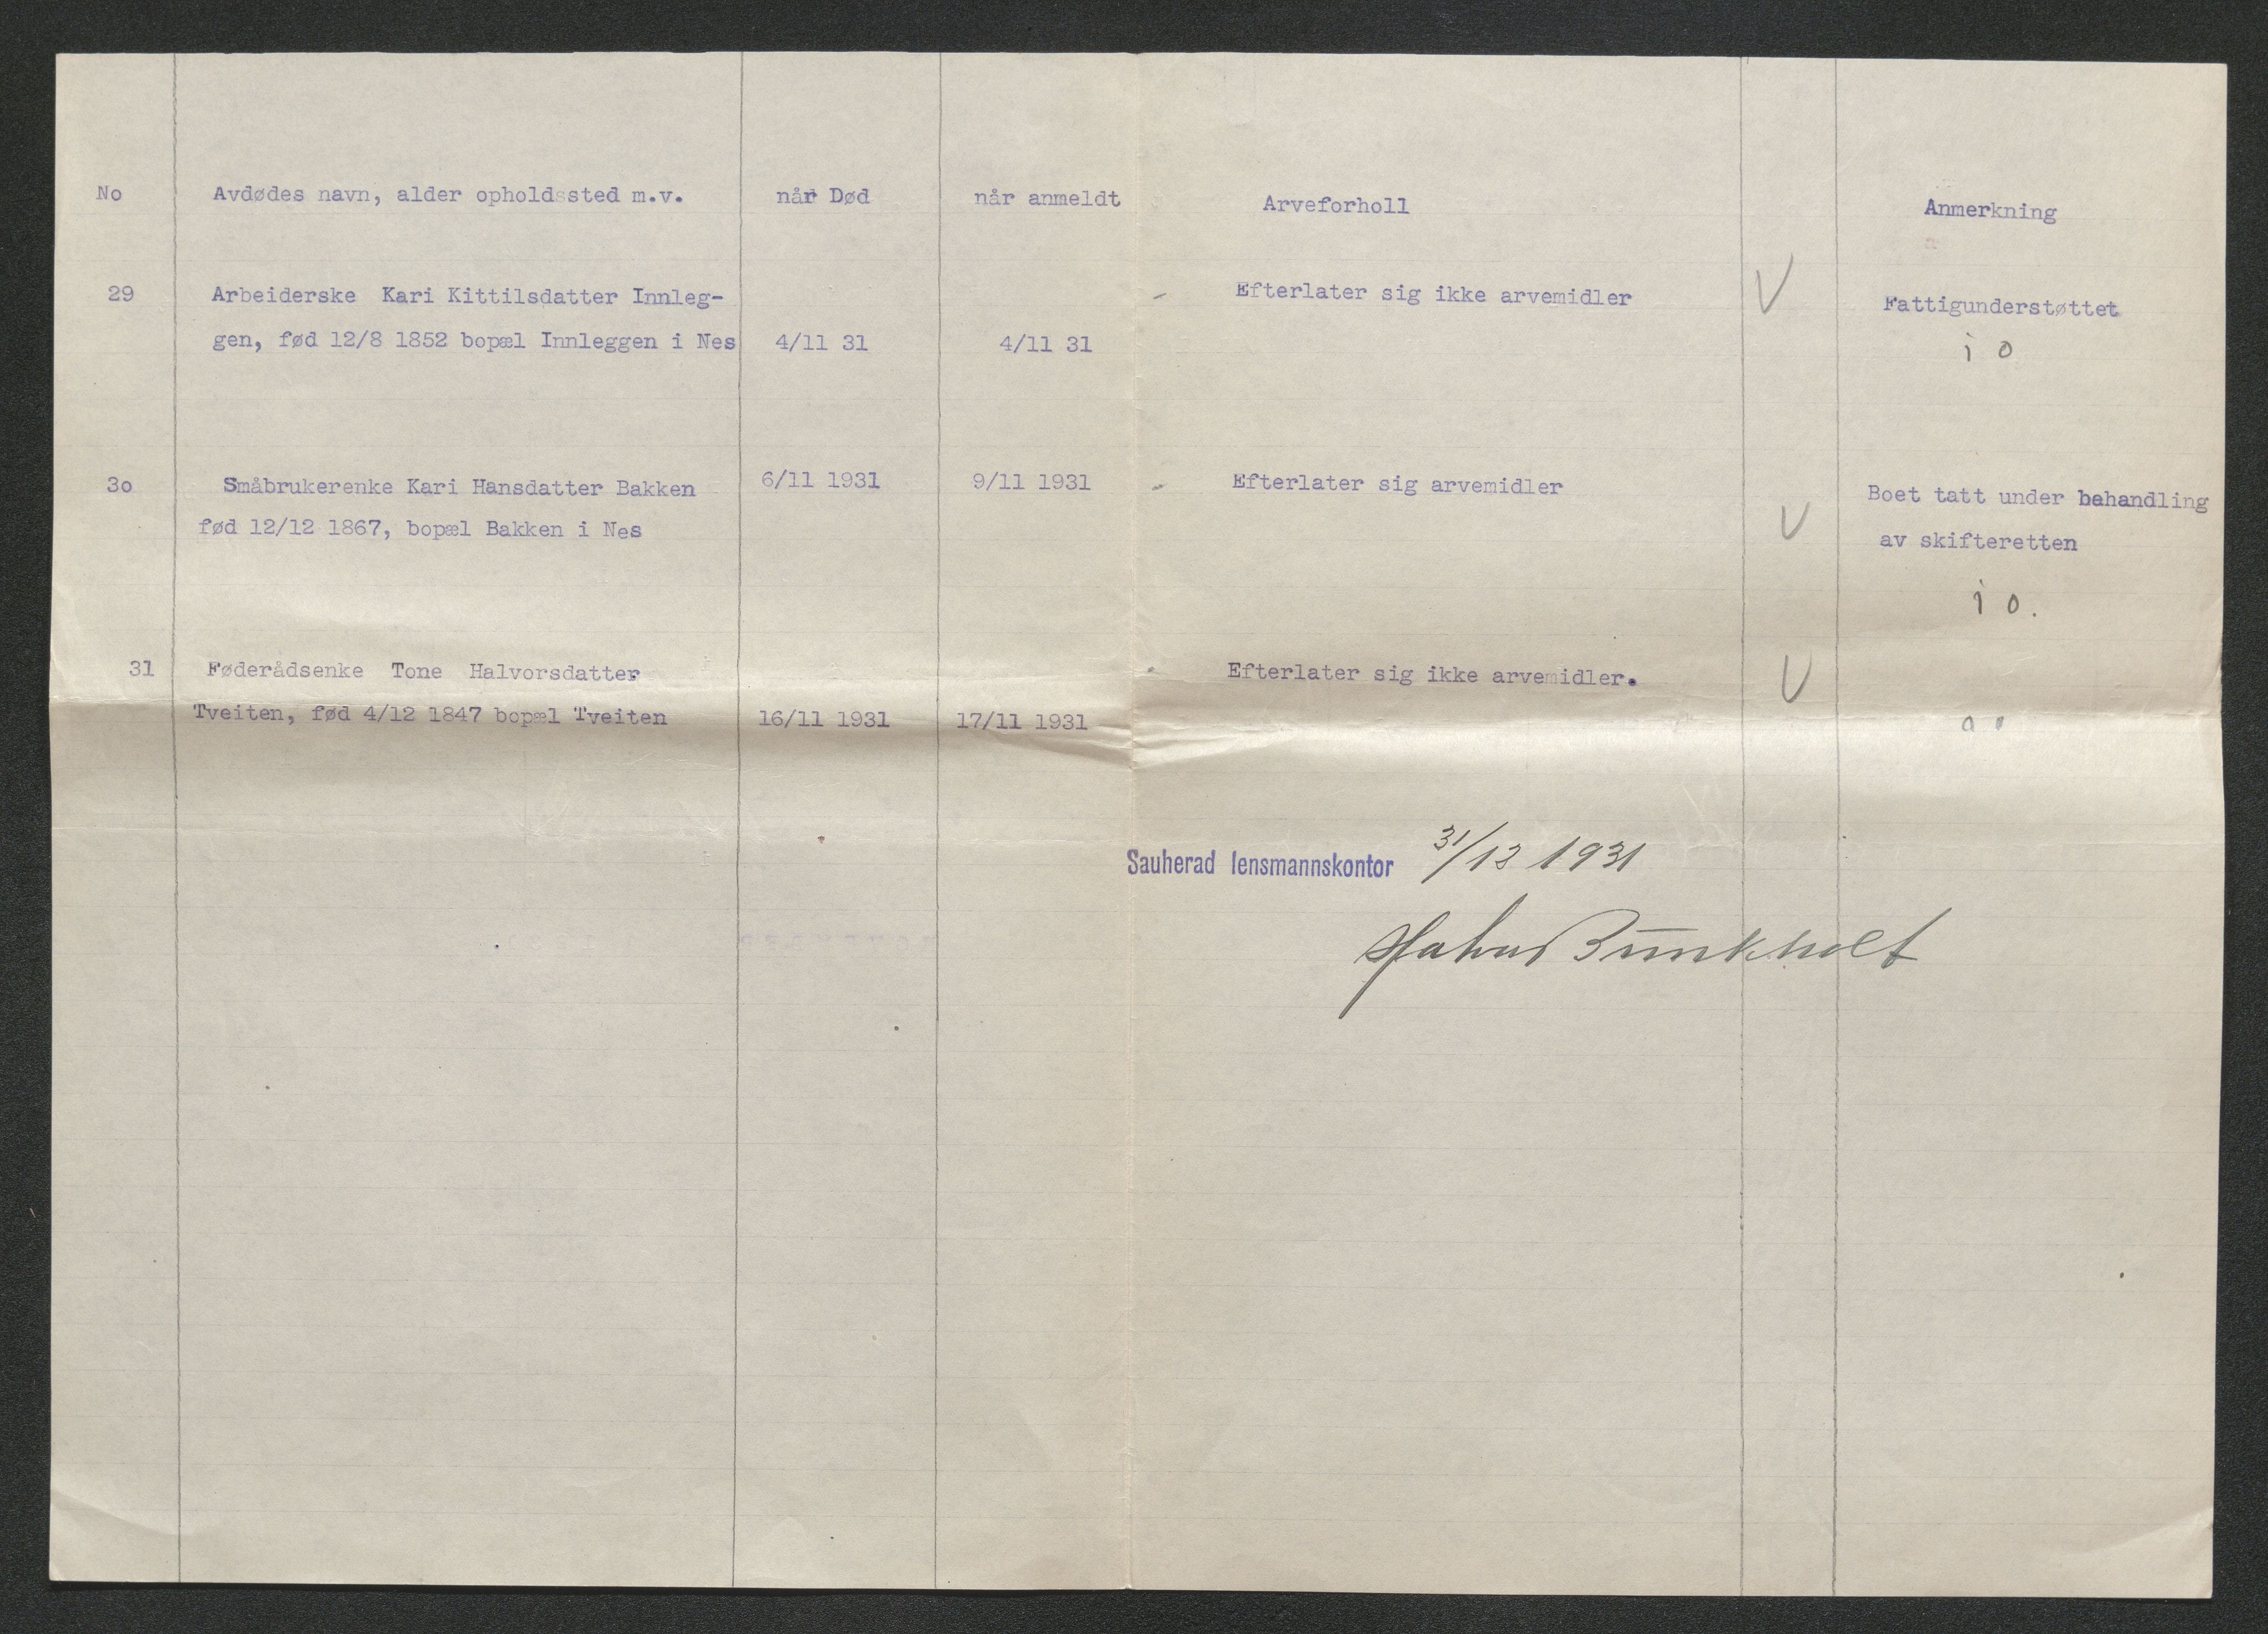 No Avdødes navn, alder opholdssted m.v. når Død når anmeldt Arveforholl Anmerkning
29 Arbeiderske Kari Kittilsdatter Innleg- Efterlater sig ikke arvemidler V Fattigunderstøttet
gen, fød 12/8 1852 bopæl Innleggen i Nes 4/11 31 4/11 31 i o
3o Småbrukerenke Kari Hansdatter Bakken 6/11 1931 9/11 1931 Efterlater sig arvemidler Boet tatt under behandling
fød 12/12 1867, bopæl Bakken i Nes V av skifteretten
i o.
31 Føderådsenke Tone Halvorsdatter Efterlater sig ikke arvemidler. V
Tveiten, fød 4/12 1847 bopæl Tveiten 16/11 1931 17/11 1931
Sauherad lensmannskontor 31/12 1931
Bunkholt